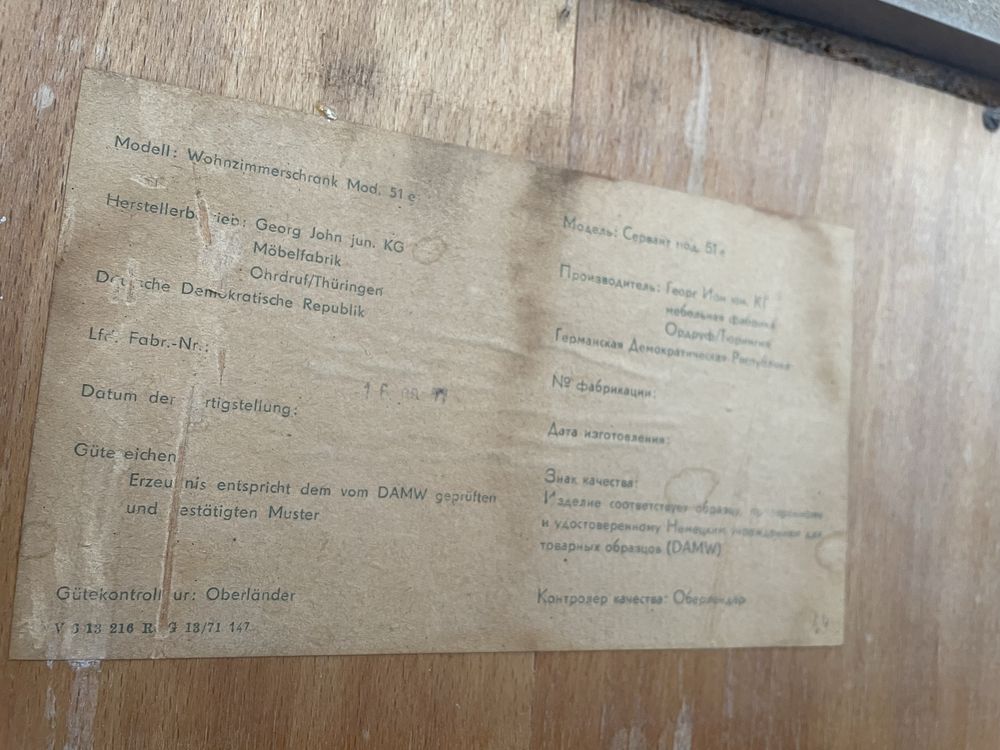 Modell: Wohnzimmerschrank Mod. 51 e
Herstellerbetrieb: Georg John jun. KG
Möbelfabrik
Ohrdruf/Thüringen
Deutsche Demokratische Republik
Lfd. Fabr.-Nr.:
Datum der Fertigstellung:
Gütezeichen
Erzeugnis entspricht dem vom DAMW geprüften
und bestätigten Muster
Gütekontrolleur: Oberländer
V 5 13 216 13/71 147
Модель: Сервант мод. 51 е
Производитель: Георг Ион юн. КГ
мебельная фабрика
Ордруф/Тюрингия
Германская Демократическая Республика
№ фабрикации:
Дата изготовления:
Знак качества:
Изделие соответствует образцу, проверенному
и удостоверенному Немецким учреждением для
товарных образцов (DAMW)
Контролер качества: Оберлендер